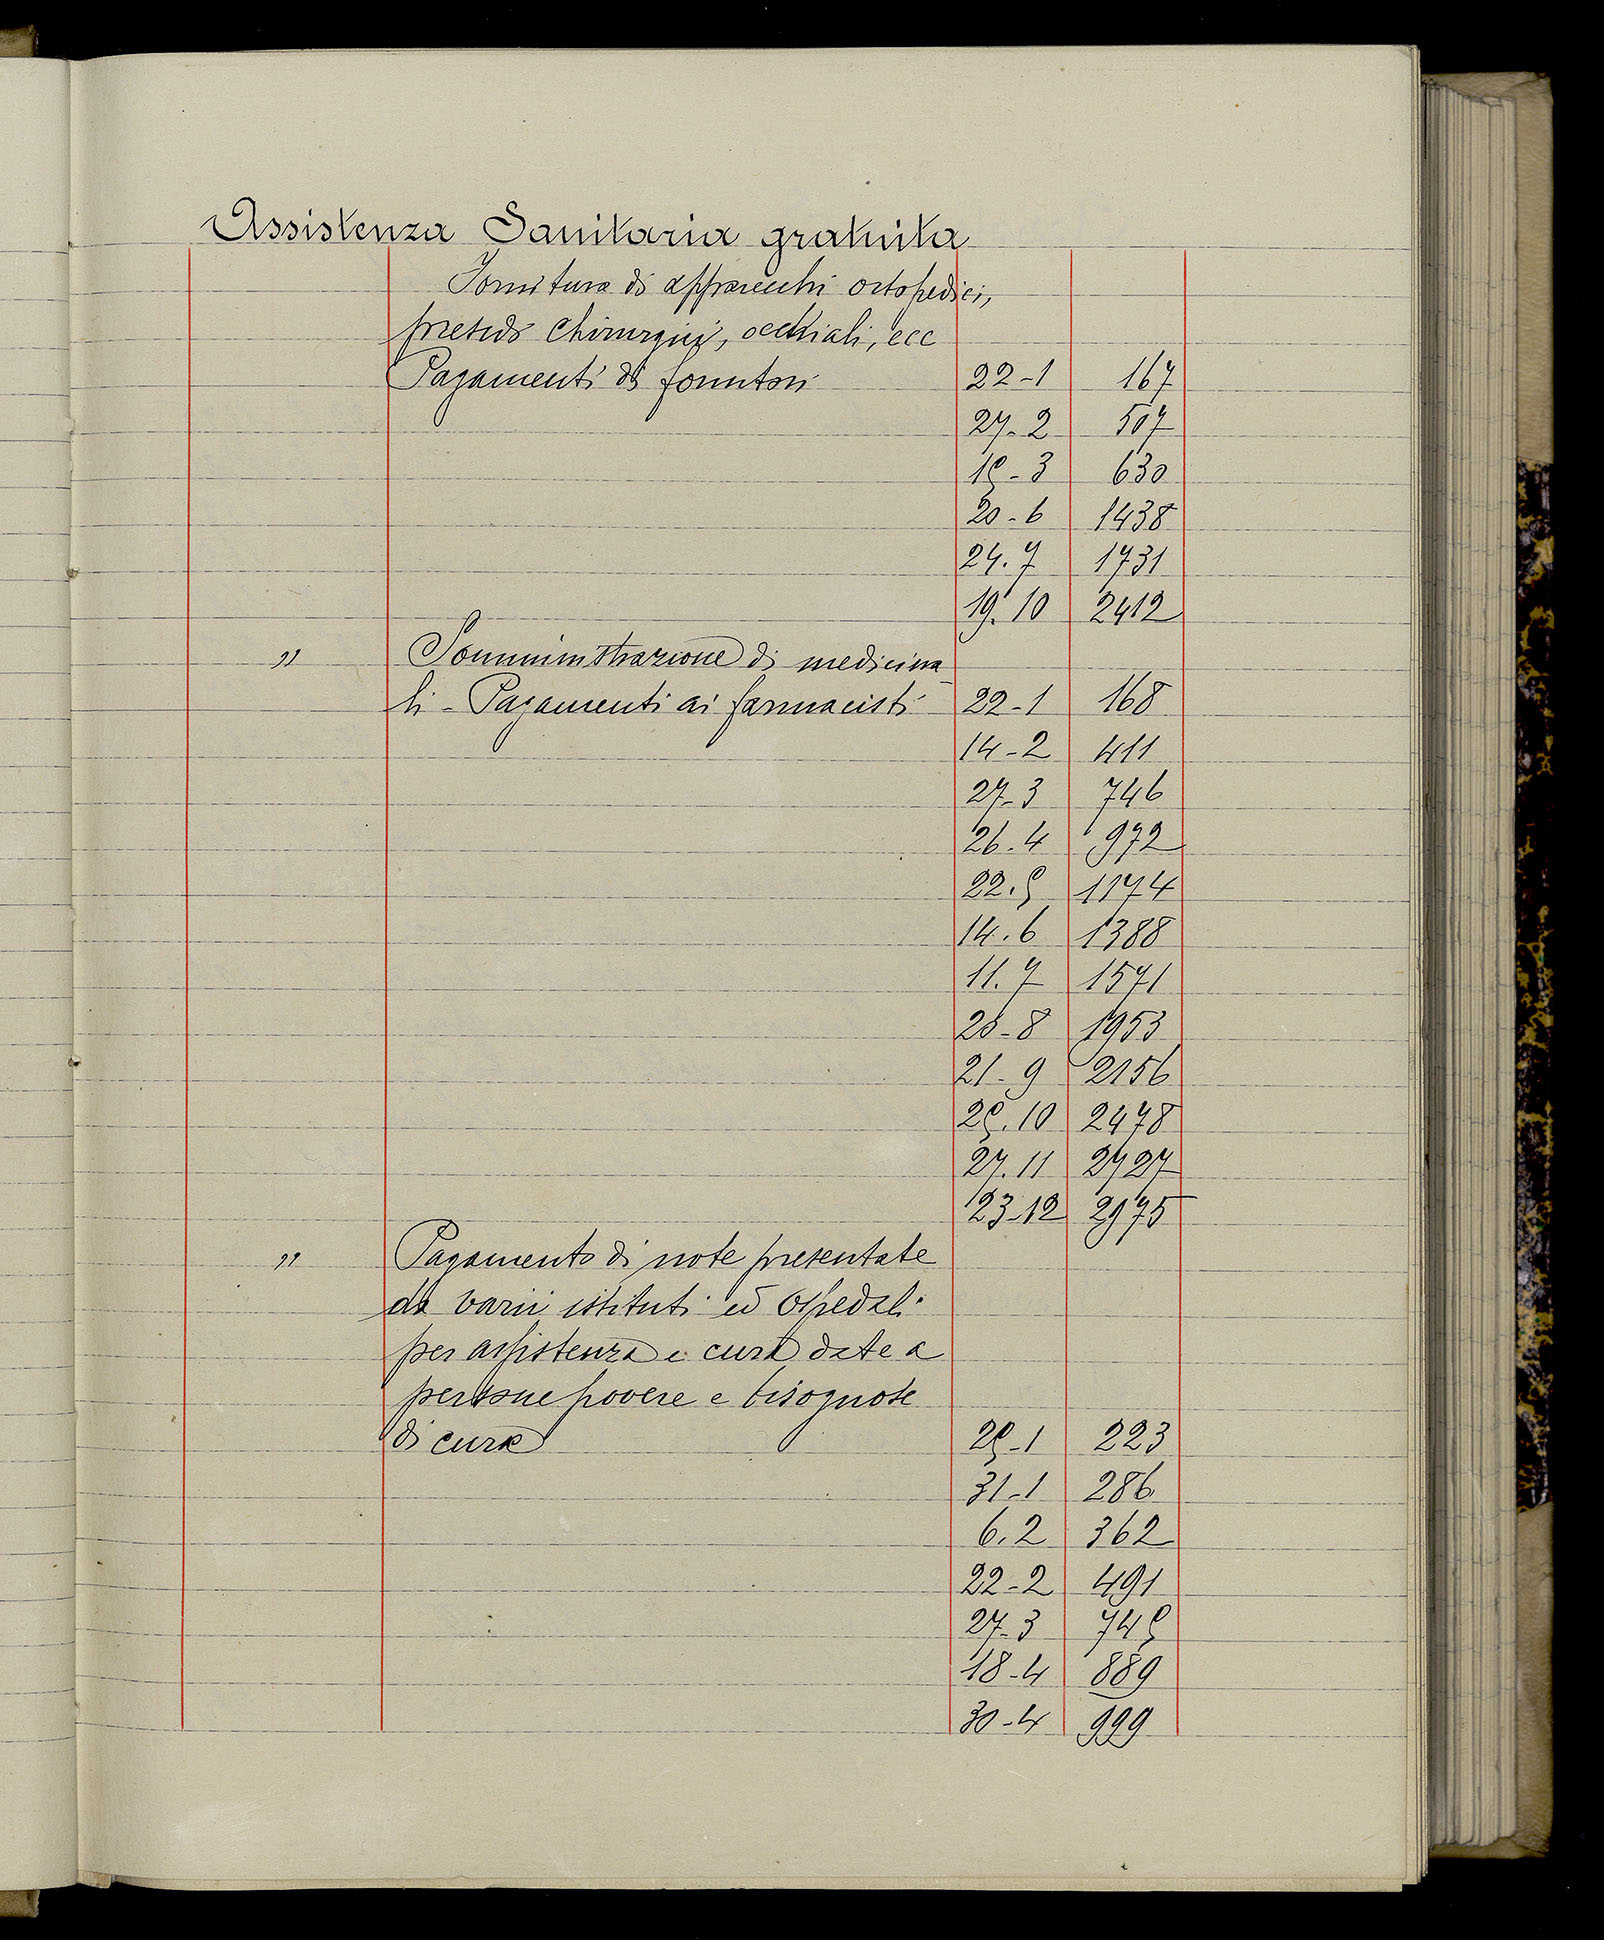 Assistenza Sanitaria gratuita
Fornitura di apparecchi ortopedici,
presidi Chirurgici, occhiali, ecc
Pagamenti ai fornitori 22-1 167
27-2 507
15-3 630
20-6 1438
24.7 1731
19.10 2412
" Somministrazione di medicina
li - Pagamenti ai farmacisti 22-1 168
14-2 411
27-3 746
26.4 972
22.5 1174
14.6 1388
11.7 1571
28-8 1953
21-9 2156
25.10 2478
27.11 2727
23-12 2975
" Pagamento di note presentate
da varii istituti ed ospedali
per assistenza e cura date a
persone povere e bisognose
di cura 25-1 223
31-1 286
6.2 362
22-2 491
27-3 745
18-4 889
30-4 999